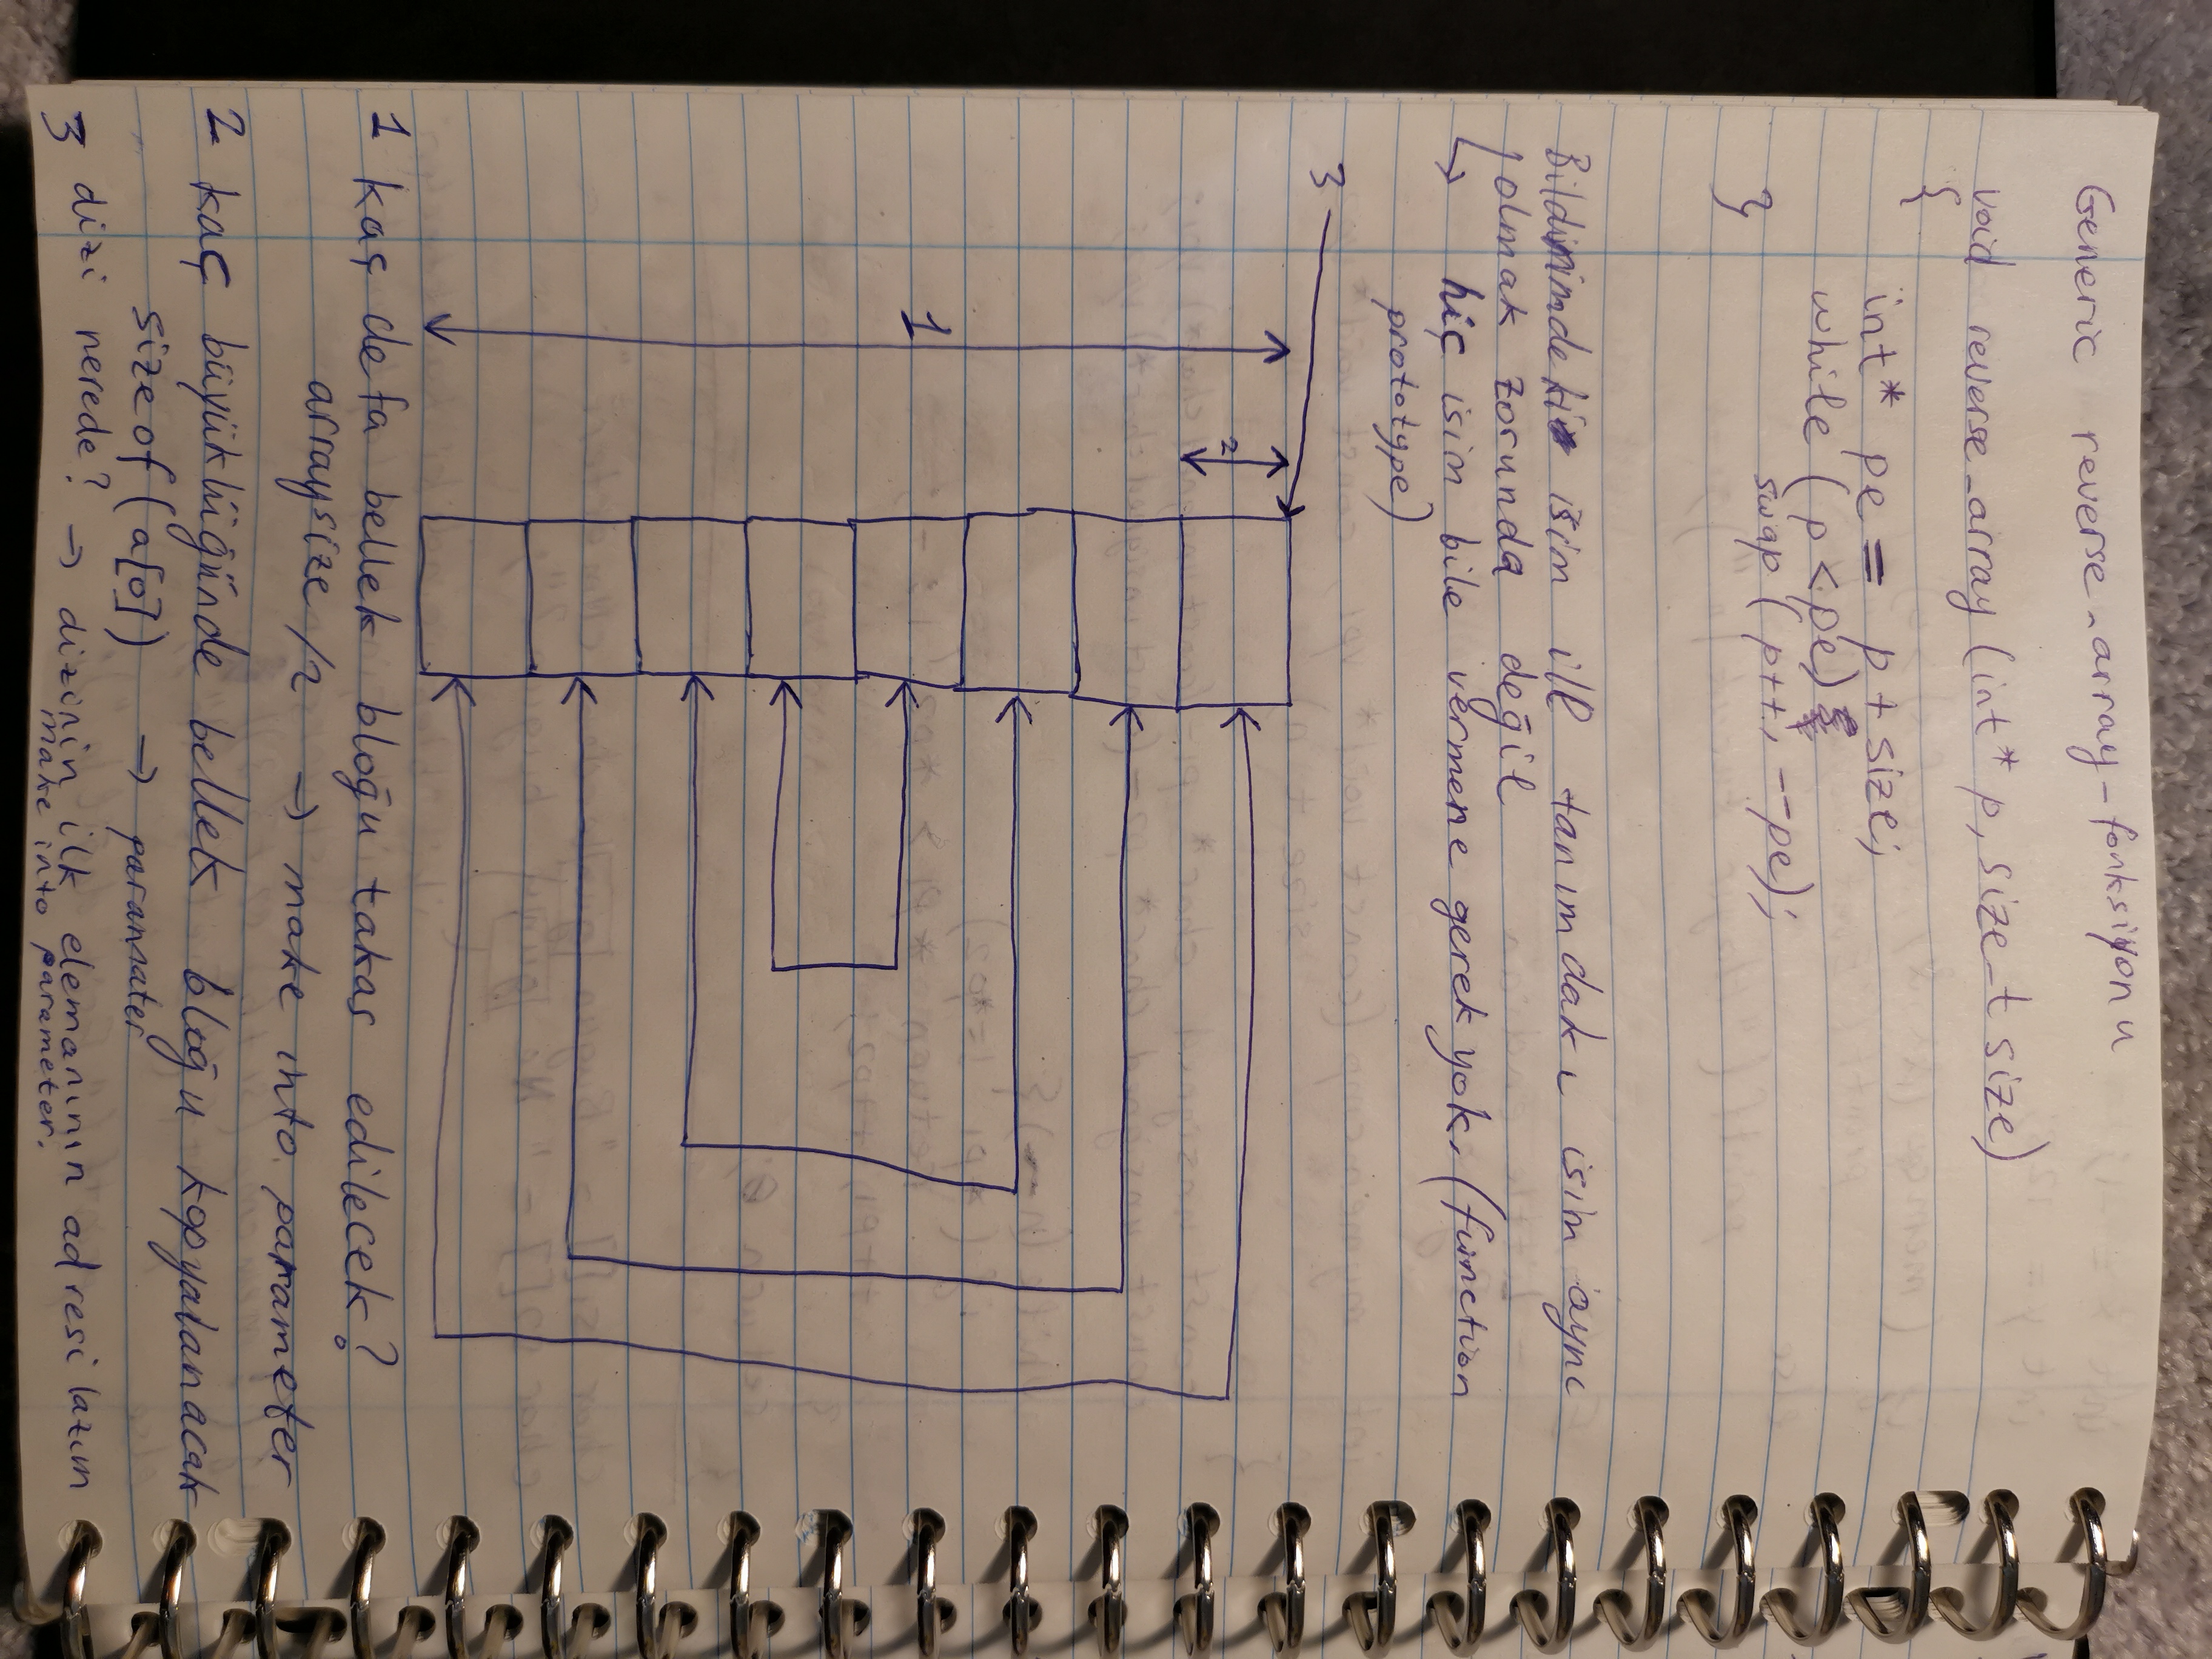 Generic reverse_array_fonksiyonu
void reverse_array (int* p, size_t size)
{
int* pe = p + size;
while (p < pe)
swap (p++, --pe);
}
Bildirimdeki isim ile tanımdakı isim aynı
olmak zorunda değil
↳ hiç isim bile vermene gerek yok. (function
prototype)
3
2
1
1 kaç defa bellek bloğu takas edilecek?
arraysize /2 → make into parameter
2 kaç büyüklüğünde bellek bloğu kopyalanacak
sizeof (a[0]) → paramater
3 dizi nerede? → dizinin ilk elemanının adresi lazım
make into parameter.